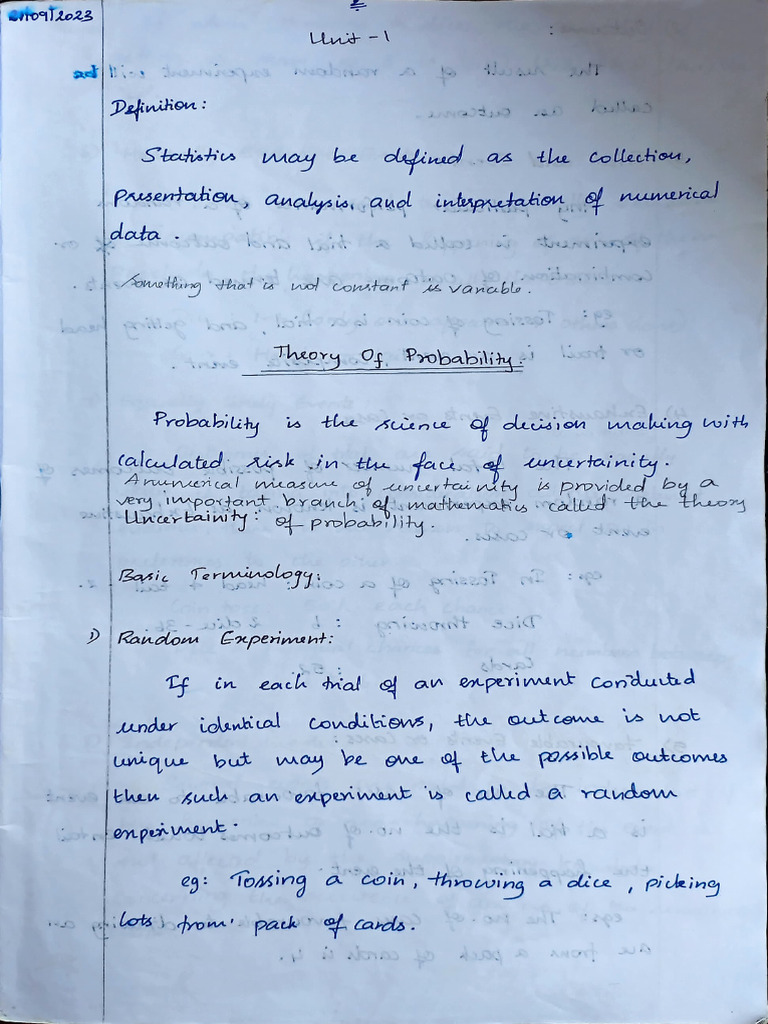 09/2023
Unit - 1
Definition:
Statistics may be defined as the collection,
presentation, analysis, and interpretation of numerical
data.
Something that is not constant is variable.
Theory Of Probability.
Probability is the science of decision making with
calculated risk in the face of uncertainity.
A numerical measure of uncertainity is provided by a
very important branch of mathematics called the theory
Uncertainity: of probability.
Basic Terminology:
1) Random Experiment:
If in each trial of an experiment conducted
under identical conditions, the outcome is not
unique but may be one of the possible outcomes
then such an experiment is called a random
experiment.
eg: Tossing a coin, throwing a dice, picking
lots from pack of cards.